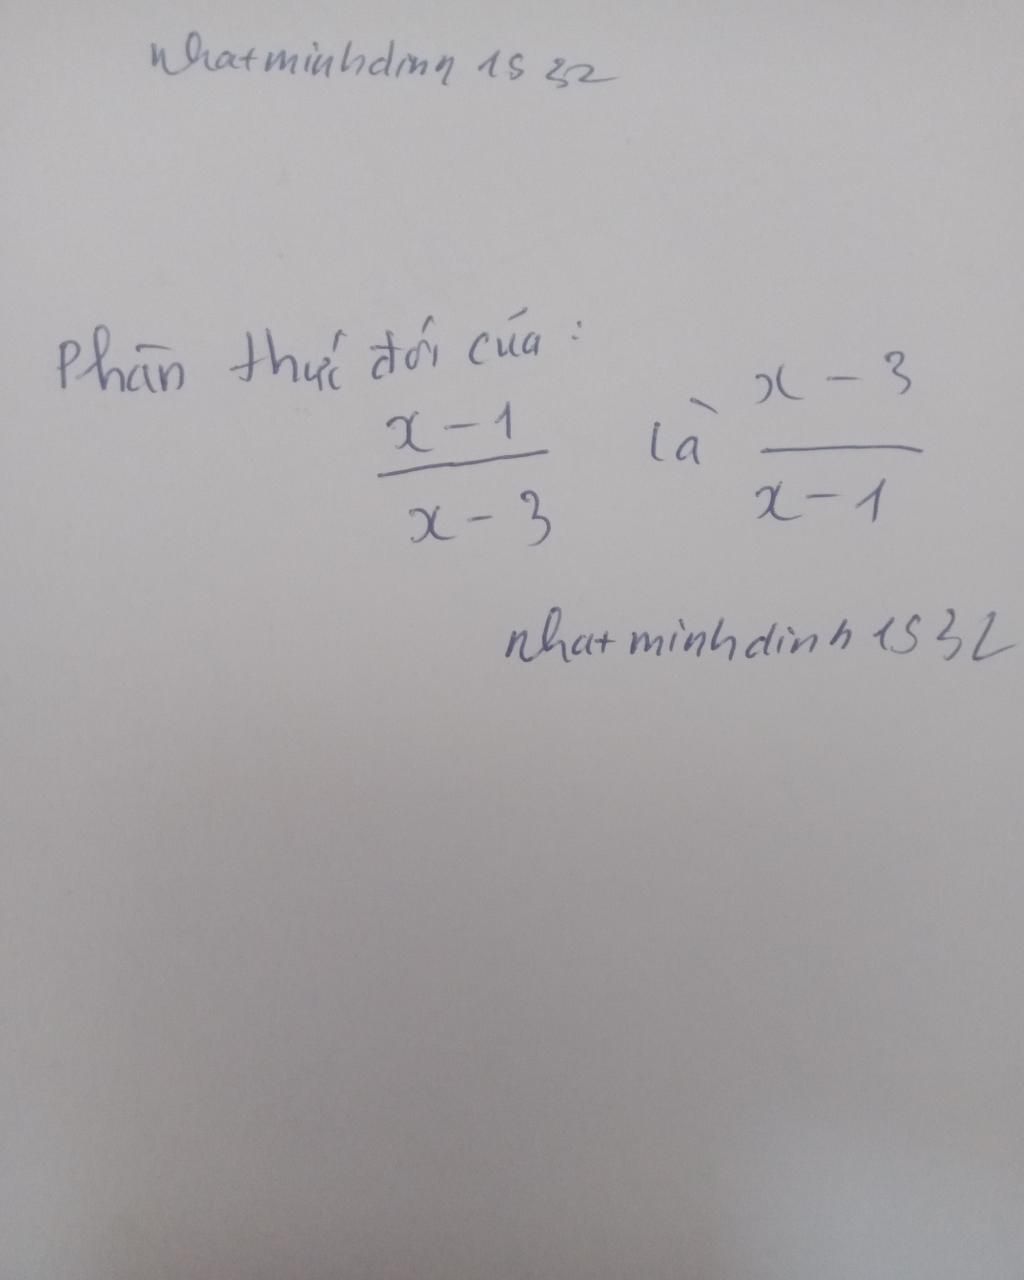 nhatminhdinh 1532
Phân thức đối của :
x - 1 / x - 3 là x - 3 / x - 1
nhatminhdinh 1532